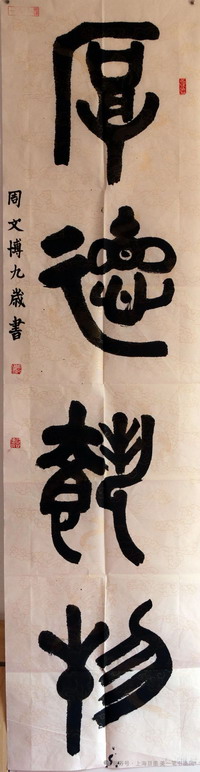 厚德載物
周文博九歲書